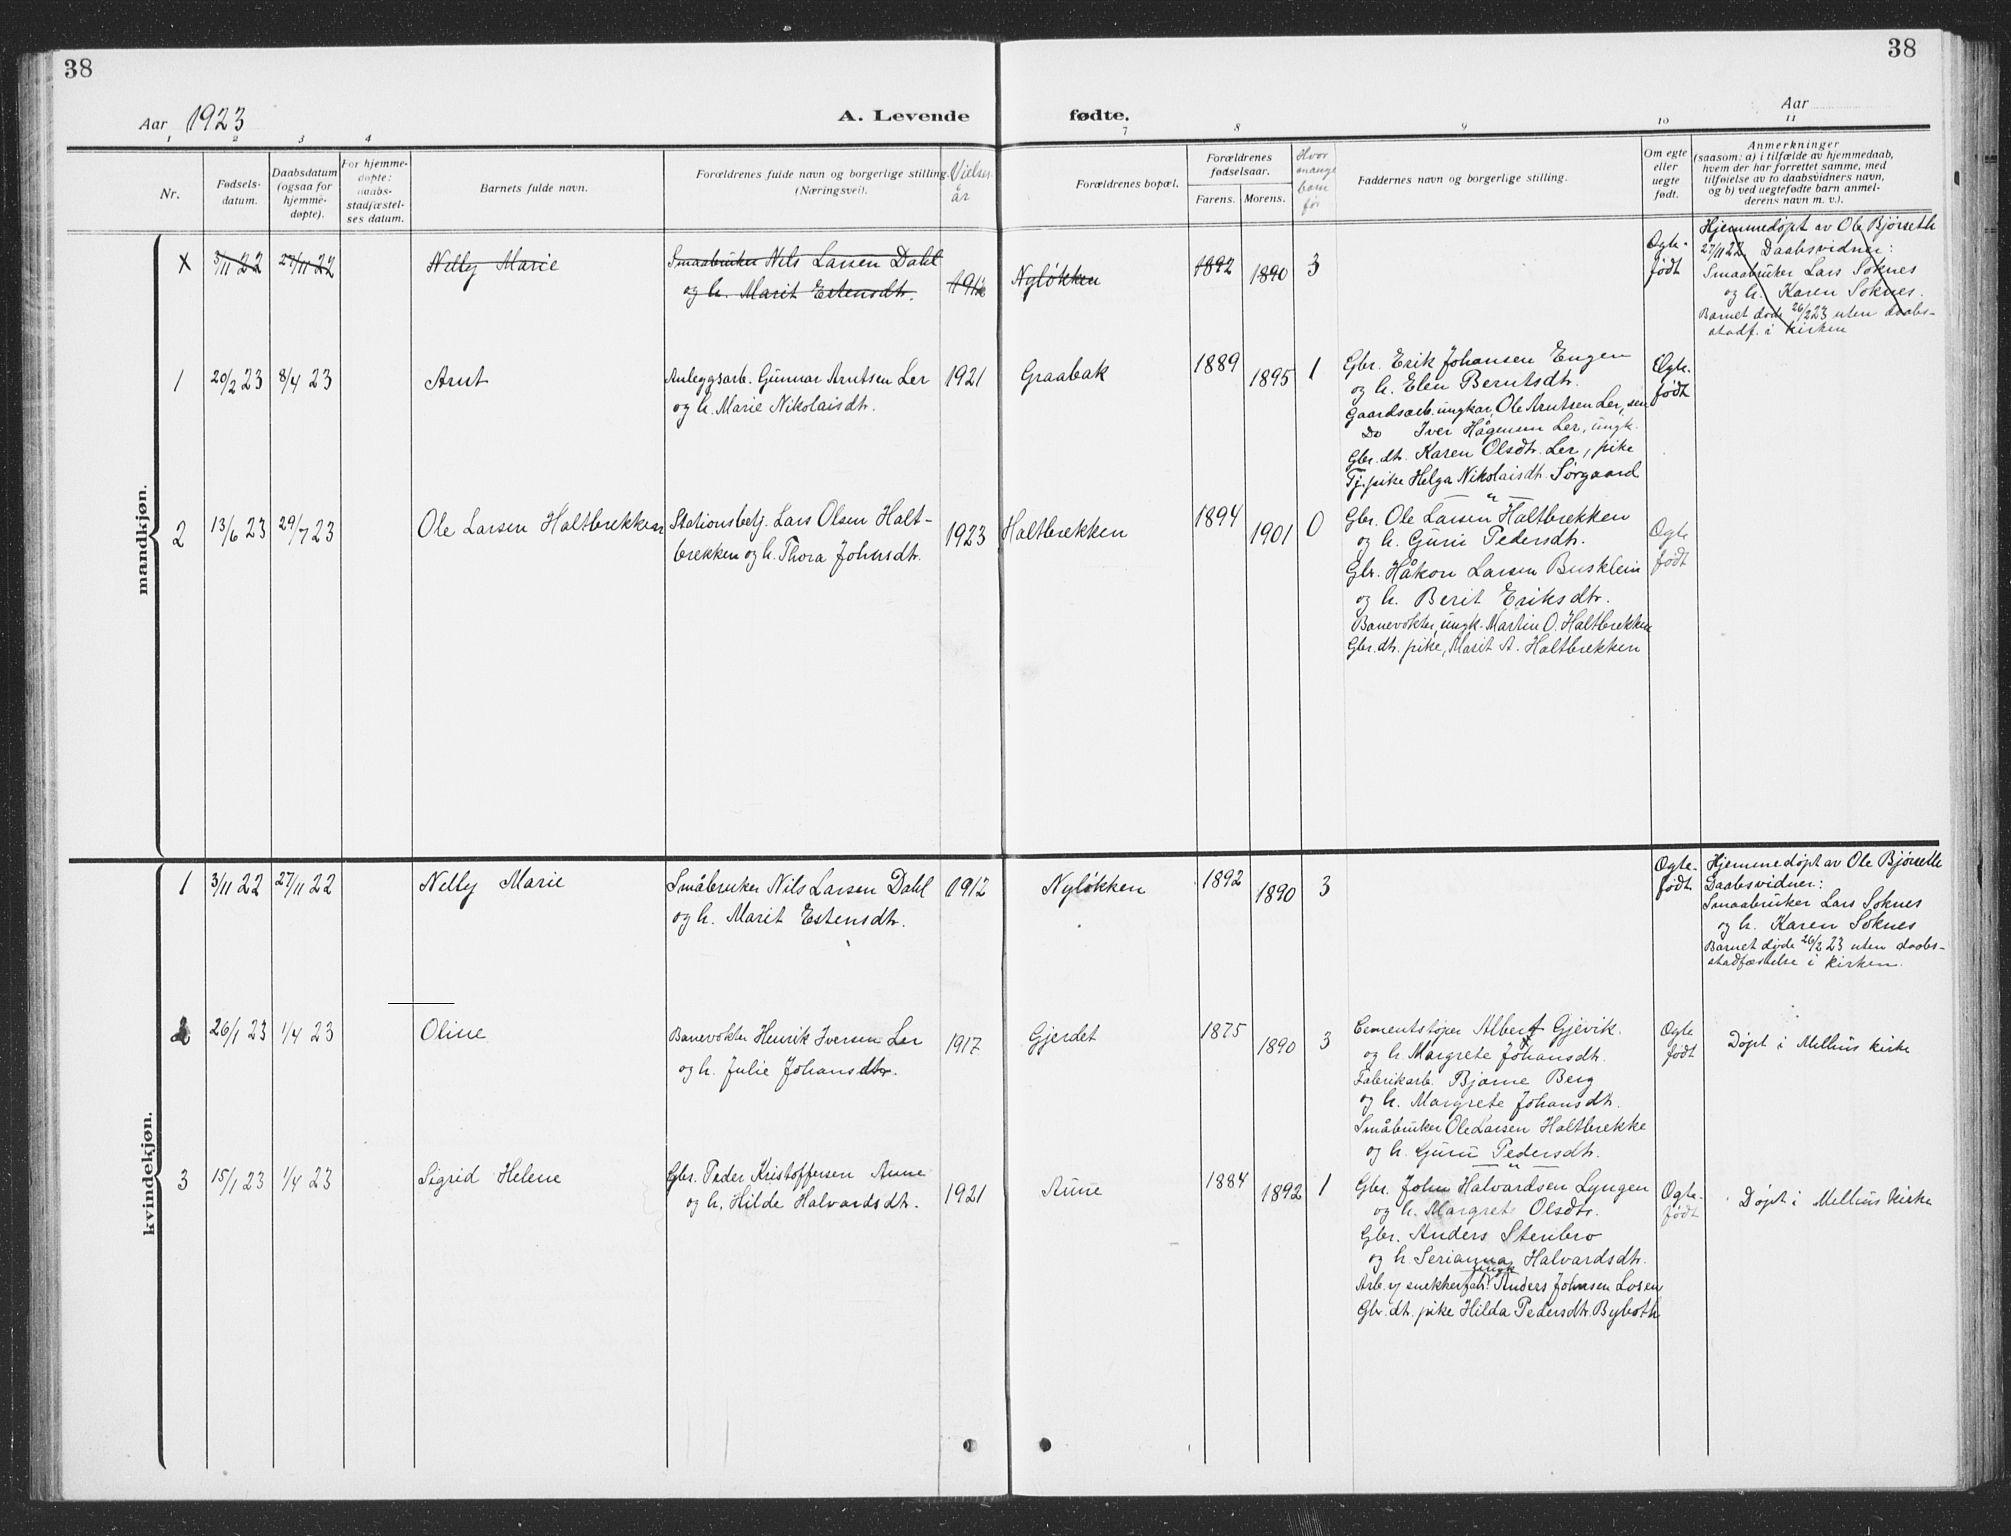 38
38
Aar 1923
A. Levende
fødte.
Aar
1 2 3 4 7 8 9 10 11
Nr.
Fødsels-
datum.
Daabsdatum
(ogsaa for
hjemme-
døpte).
For hjemme-
døpte:
daabs-
stadfæstel-
ses datum.
Barnets fulde navn.
Forældrenes fulde navn og borgerlige stilling.
(Næringsvei).
Vielses
år
Forældrenes bopæl.
Forældrenes
fødselsaar.
Farens. Morens.
Hvor
mange
barn
før
Faddernes navn og borgerlige stilling.
Om egte
eller
uegte
født.
Anmerkninger
(saasom: a) i tilfælde av hjemmedaab,
hvem der har forrettet samme, med
tilføielse av to daabsvidners navn,
og b) ved uegtefødte barn anmel-
derens navn m. v.).
mandkjøn.
X 3/11 22 27/11 22 Nelly Marie
Smaabruker Nils Larsen Dahl
og h. Marit Estensdtr.
1912 Nyløkken 1892 1890 3
Ogte-
født
Hjemmedøpt av Ole Bjørseth
27/11 22. Daabsvidner:
Smaabruker Lars Soknes
og h. Karen Soknes.
Barnet døde 26/2 23 uten daabs-
stadf. i kirken
1 20/2 23 8/4 23 Arnt
Anleggsarb. Gunnar Arntsen Ler
og h. Marie Nikolaisdtr.
1921 Graabak 1889 1895 1
Gbr. Erik Johansen Engen
og h. Elen Berntsdtr.
Gaardsarb. ungkar, Ole Arntsen Ler, sen
Do Iver Hågensen Ler, ungk.
Gbr. dtr. Karen Olsdtr. Ler, pike
Tj. pike Helga Nikolaisdtr. Sørgaard
Ogte-
født
2 13/6 23 29/7 23 Ole Larsen Haltbrekken
Stationsbetj. Lars Olsen Halt-
brekken og h. Thora Johnsdtr.
1923 Haltbrekken 1894 1901 0
Gbr. Ole Larsen Haltbrekken
og h. Guru Pedersdtr.
Gbr. Håkon Larsen Busklein
og h. Berit Eriksdtr.
Banevokter, ungk. Martin O. Haltbrekken
Gbr. dtr. pike, Marit A. Haltbrekken
Ogte
født
kvindekjøn.
1 3/11 22 27/11 22 Nelly Marie
Småbruker Nils Larsen Dahl
og h. Marit Estensdtr.
1912 Nyløkken 1892 1890 3
Ogte-
født
Hjemmedøpt av Ole Bjørseth
Daabsvidner:
Smaabruker Lars Soknes
og h. Karen Soknes
Barnet døde 26/2 23 uten daabs-
stadfæstelse i kirken.
2 26/1 23 1/4 23 Oline
Banevokter Henrik Iversen Ler
og h. Julie Johansdtr.
1917 Gjerdet 1875 1890 3
Cementstøper Albert Gjevik.
og h. Margrete Johansdtr.
Fabrikarb. Bjarne Berg
og h. Margrete Johansdtr.
Småbruker Ole Larsen Haltbrekke
og h. Guru Pedersdtr.
Ogte
født
Døpt i Melhus kirke
3 15/1 23 1/4 23 Sigrid Helene
Gbr. Peder Kristoffersen Aune
og h. Hilde Halvardsdtr.
1921 Aune 1884 1892 1
Gbr. John Halvardsen Lyngen
og h. Margrete Olsdtr.
Gbr. Anders Stenbro
og h. Serianna Halvardsdtr.
ungk
Arb. v/ snekkerfabr. Anders Johnsen Losen
Gbr. dtr. pike Hilda Pedersdtr. Byboth
Ogte-
født
Døpt i Melhus kirke